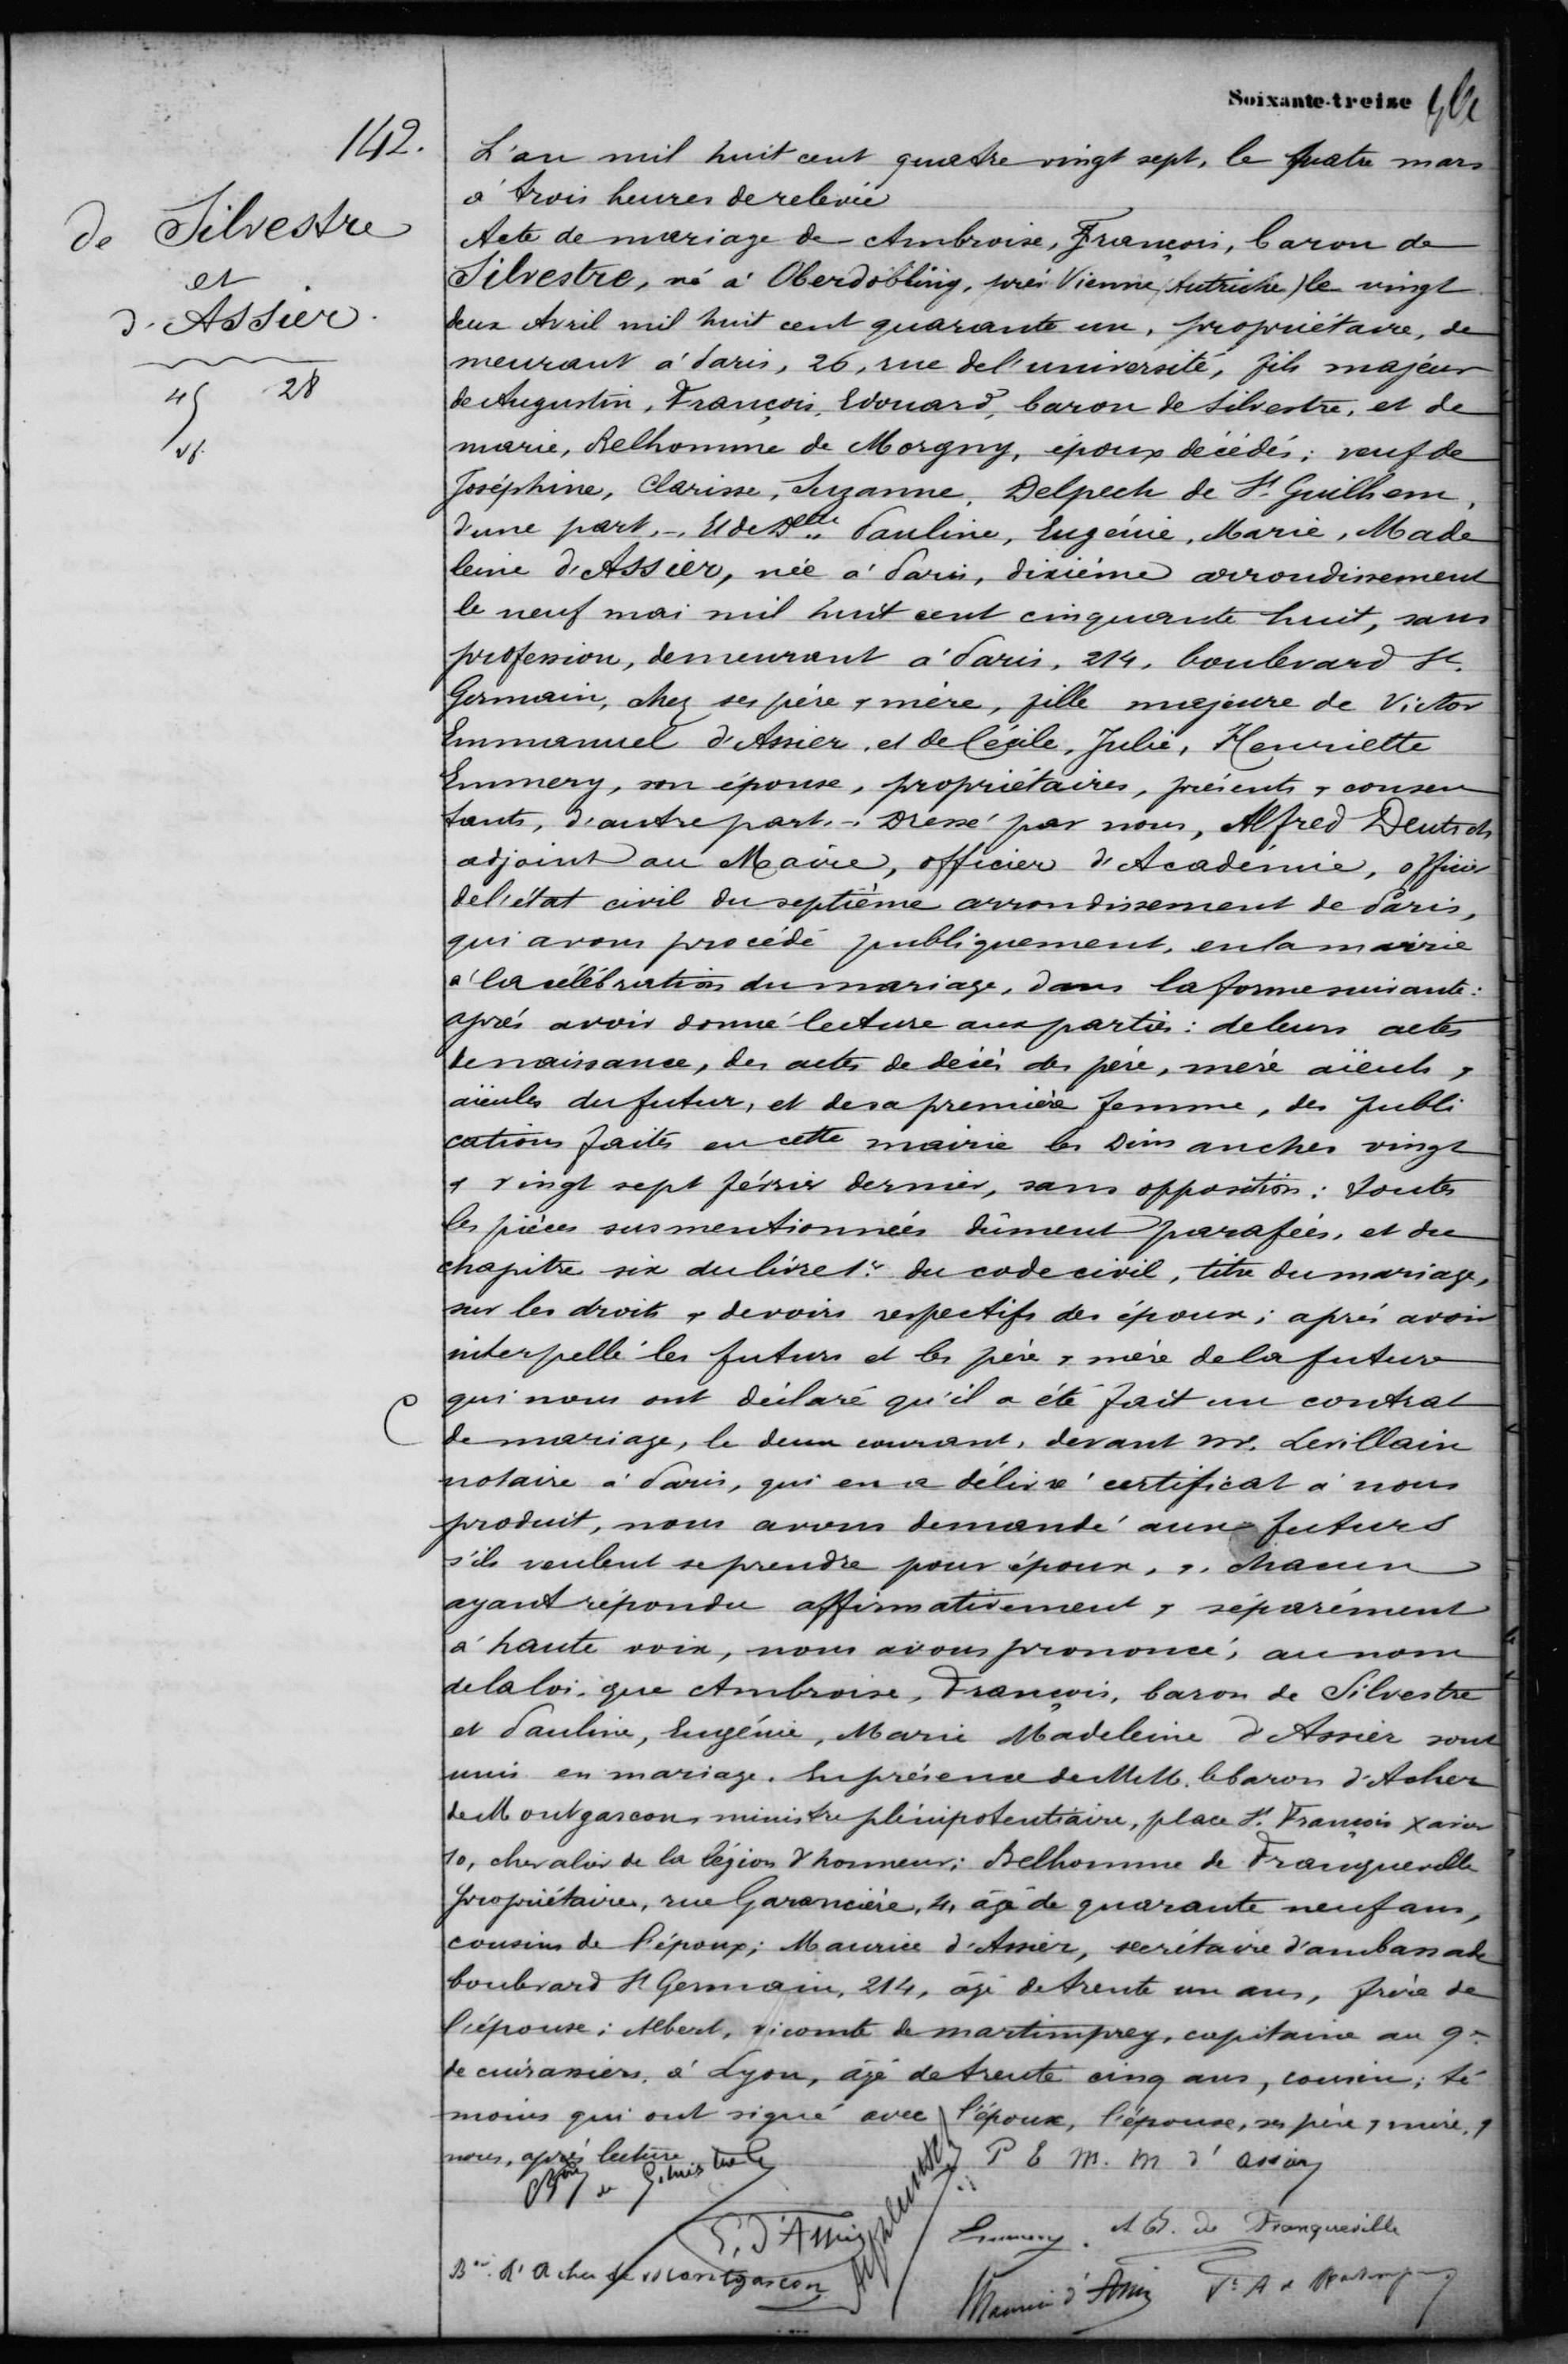 Soixante-treize
142.
de Silvestre
et
d'Assier
45 28
L'an mil huit cent quatre vingt sept, le quatre mars
à trois heures de relevée
Acte de mariage de Ambroise, François, baron de
Silvestre, né à Oberdöbling, près Vienne (Autriche) le vingt
deux Avril mil huit cent quarante un, propriétaire, de
meurant à Paris, 26, rue de l'université, fils majeur
de Augustin, François, Edouard, baron de Silvestre, et de
marie, Belhomme de Morgny, époux décédés; veuf de
Joséphine, Clarisse, Suzanne, Delpech de St Guilhem,
d'une part. _ Et de Delle Pauline, Eugénie, Marie, Made
leine d'Assier, née à Paris, dixième arrondissement
le neuf mai mil huit cent cinquante huit, sans
profession, demeurant à Paris, 214, boulevard St
Germain, chez ses père & mère, fille majeure de Victor
Emmanuel d'Assier, et de Cécile, Julie, Henriette
Emmery, son épouse, propriétaires, présents & consen
tants, d'autre part. _ Dressé par nous, Alfred Deutsch
adjoint au Maire, officier d'Académie, officier
de l'état civil du septième arrondissement de Paris,
qui avons procédé publiquement, en la mairie
à la célébration du mariage, dans la forme suivante:
après avoir donné lecture aux parties: de leurs actes
de naissance, des actes de décès des père, mère aïeuls &
aïeules du futur, et de sa première femme, des publi
cations faites en cette mairie les Dimanches vingt
& vingt sept février dernier, sans opposition: toutes
les pièces susmentionnées dûment parafées, et du
chapitre six du livre 1er du code civil, titre du mariage,
sur les droits & devoirs respectifs des époux; après avoir
interpellé les futurs et les père & mère de la future
qui nous ont déclaré qu'il a été fait un contrat
de mariage, le deux courant, devant Me Levillain
notaire à Paris, qui en a délivré certificat à nous
produit, nous avons demandé aux futurs
s'ils veulent se prendre pour époux, &, chacun
ayant répondu affirmativement & séparément
à haute voix, nous avons prononcé, au nom
de la loi, que Ambroise, François, baron de Silvestre
et Pauline, Eugénie, Marie Madeleine d'Assier sont
unis en mariage. En présence de MM. le baron d'Acher
de Montgascon ministre plénipotentiaire, place St François Xavier
10, chevalier de la légion d'honneur; Belhomme de Franqueville
propriétaire, rue Garancière, 4, âgé de quarante neuf ans,
cousins de l'époux; Maurice d'Assier, secrétaire d'ambassade
boulevard St Germain, 214, âgé de trente un ans, frère de
l'épouse; Albert, vicomte de martimprey, capitaine au 9e
de cuirassiers, à Lyon, âgé de trente cinq ans, cousin; té
moins qui ont signé avec l'époux, l'épouse, ses père & mère, &
nous, après lecture
Bon de Silvestre
P E M. M d'assier
E. d'Assier
Emmery. A B. de Franqueville
Bon d'Acher de Montgascon
Maurice d'Assier Vte A de Martimprey